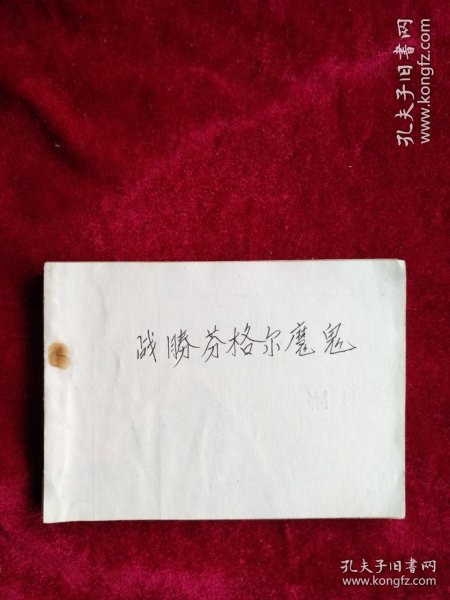 孔夫子旧书网
www.kongfz.com
战勝芬格尔魔鬼
孔夫子旧书网
www.kongfz.com